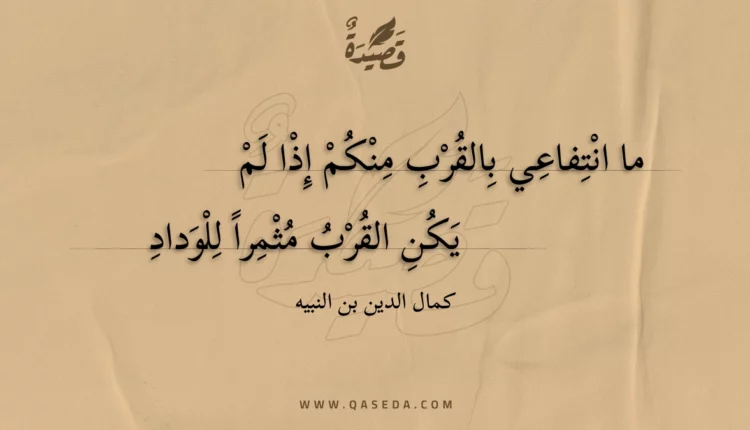 قَصِيدَةٌ
ما انْتِفاعِي بِالقُرْبِ مِنْكُمْ إِذْا لَمْ
يَكُنِ القُرْبُ مُثْمِراً لِلْوَدادِ
كمال الدين بن النبيه
WWW.QASEDA.COM